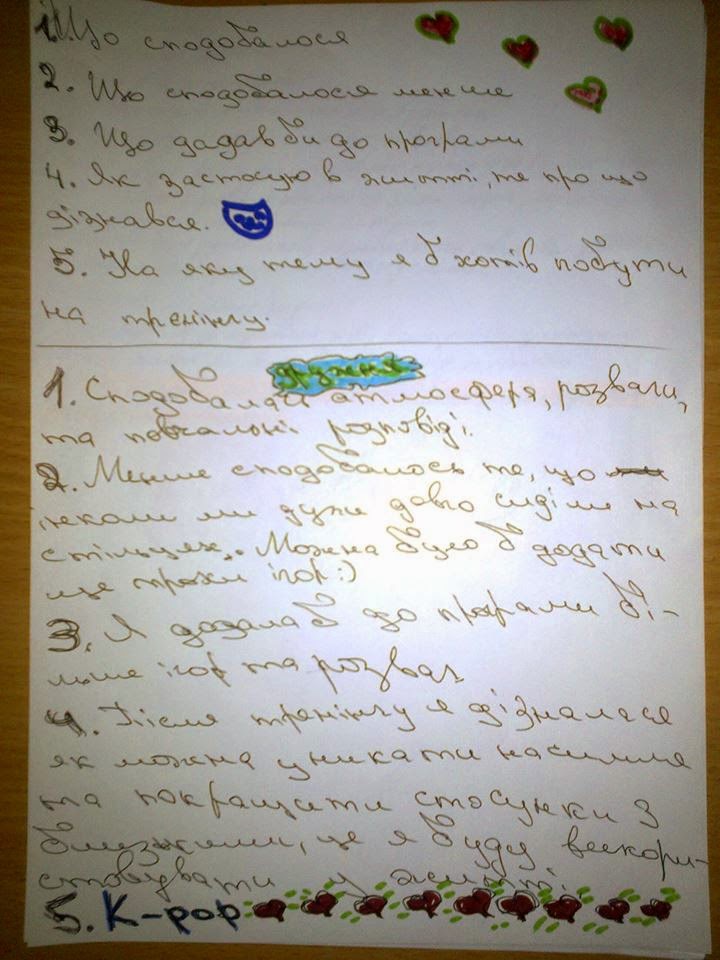 1. Що сподобалося
2. Що сподобалося менше
3. Що дадав би до програми
4. Як застосую в житті, те про що
дізнався.
5. На яку тему я б хотів побути
на тренінгу.
дружня
1. Сподобалась атмосфера, розваги,
та повчальні розповіді.
2. Менше сподобалось те, що
інколи ми дуже довго сиділи на
стільцях.. Можна було б додати
ще трохи ігор :)
3. Я додала б до програми бі-
льше ігор та розваг
4. Після тренінгу я дізналася
як можна уникати насилля
та покращити стосунки з
близькими, це я буду викори-
стовувати у житті.
5. K-pop